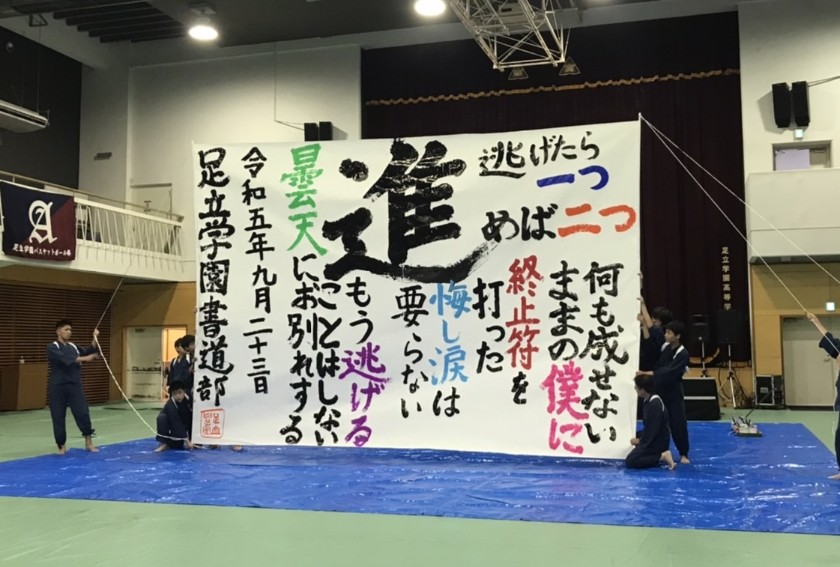 逃げたら一つ
進めば二つ
何も成せない
ままの僕に
終止符を
打った
悔し涙は
要らない
もう逃げる
ことはしない
曇天にお別れする
令和五年九月二十三日
足立学園書道部
A
足立学園バスケットボール部
足立学園高等学